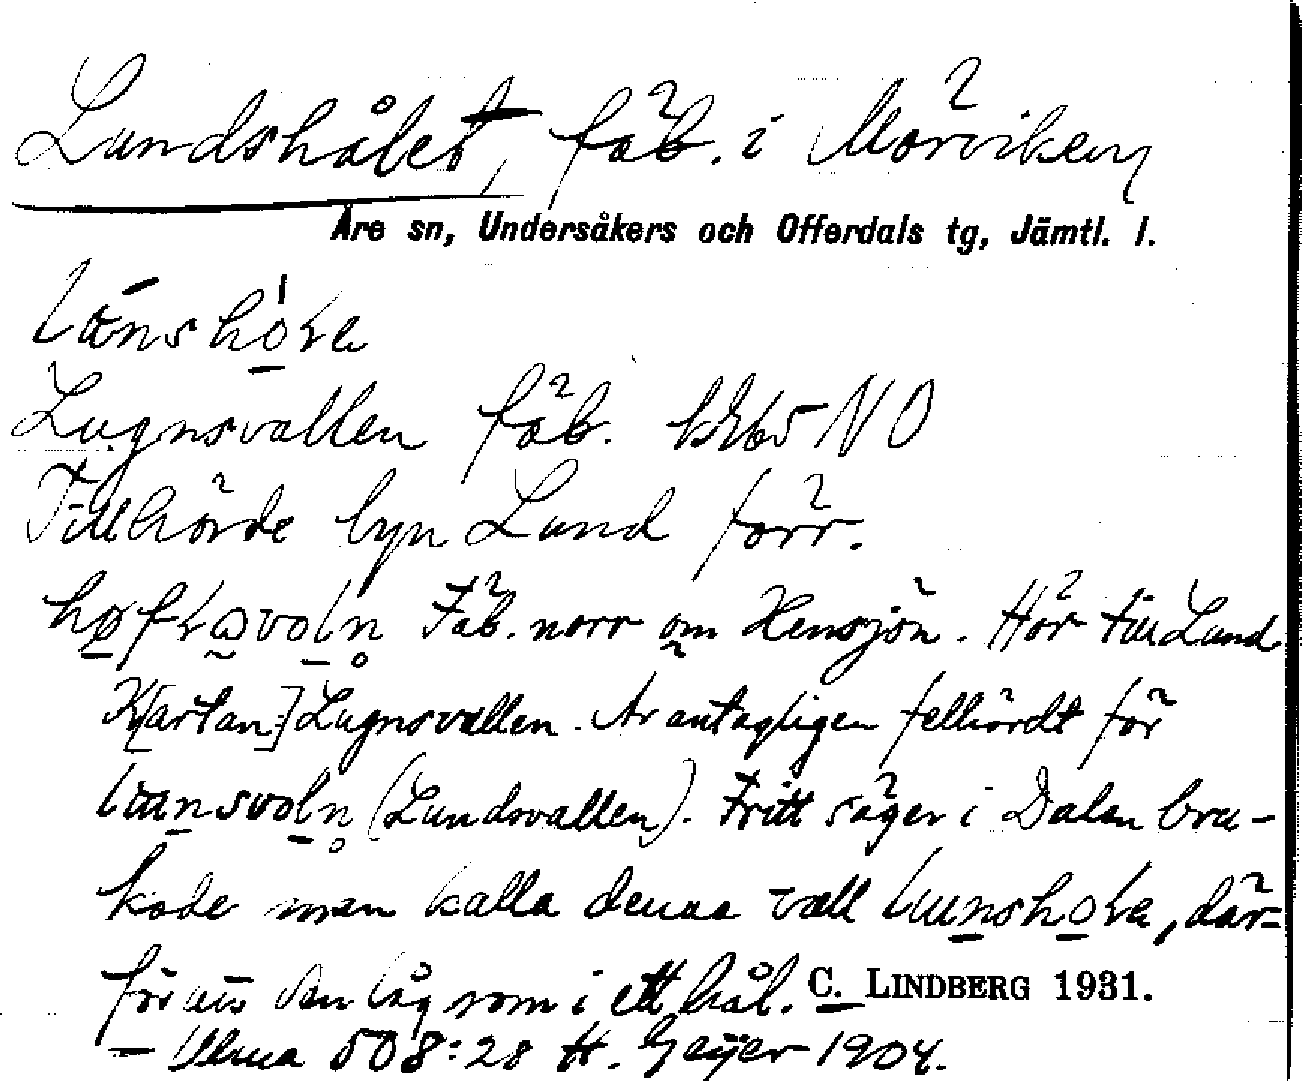 Lundshålet, fäb. i Mörviken
Åre sn, Undersåkers och Offerdals tg, Jämtl. l.
Lugnsvallen fäb. NO
Tillhörde byn Lund förr.
Fäb. norr om Hensjön. Hör till Lund
K[artan:] Lugnsvallen. Är antagligen felhördt för
(Lundsvallen). Fritt säger i Dalen bru-
kade man kalla denna vall, där-
för att den låg som i ett hål. C. LINDBERG 1931.
— Ulma 508:28 H. Geijer 1904.